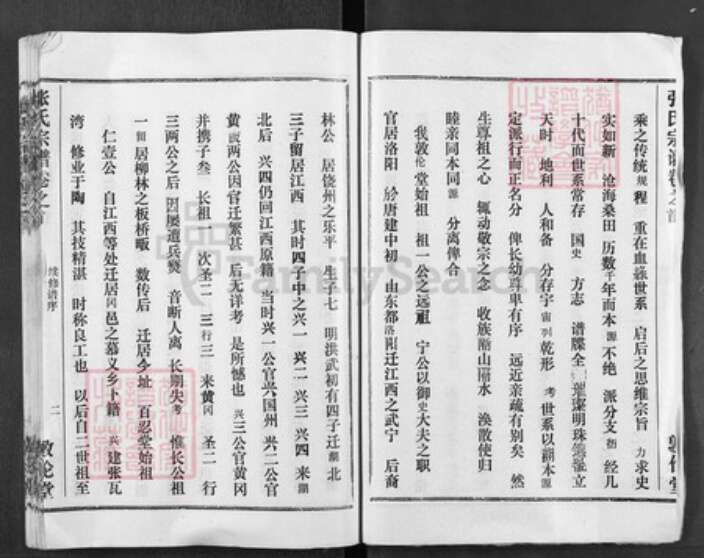 乘之传统规程 重在血缘世系 启后之思维宗旨 力求史
实如新 沧海桑田 历数千年而本源不绝 派分支 经几
十代而世系常存 国史 方志 谱牒全 璀璨明珠 张立
天时 地利 人和备 分存宇宙列乾形 考世系以溯本源
定派行而正名分 俾长幼尊卑有序 远近亲疏有别矣 然
生尊祖之心 辄动敬宗之念 收族 山丽水 涣散使归
睦亲同本同源 分离俾合
我敦伦堂始祖 祖一公之远祖 宁公以御史大夫之职
官居洛阳 於唐建中初 由东都洛阳迁江西之武宁 后裔
林公 居饶州之乐平 生子七 明洪武初有四子迁湖北
三子留居江西 其时四子中之兴一 兴二 兴三 兴四 来湖
北后 兴四仍回江西原籍 当时兴一公官兴国州 兴二公官
黄 或两公因官迁繁甚 后无详考 是所憾也 兴三公官黄冈
并携子叁 长祖一 次圣二 三行三 来黄冈 圣二 行
三两公之后 因屡遭兵燹 音断人离 长期失考 惟长公祖
一留居柳林之板桥畈 数传后 迁居今址 百忍堂始祖
仁壹公 自江西等处迁居冈邑之慕义乡卜籍 兴建张瓦
湾 修业于陶 其技精湛 时称良工也 以后自二世祖至
张氏宗谱 卷之首
续修谱序
二
敦伦堂
张氏宗谱卷之首
敦伦堂
FamilySearch